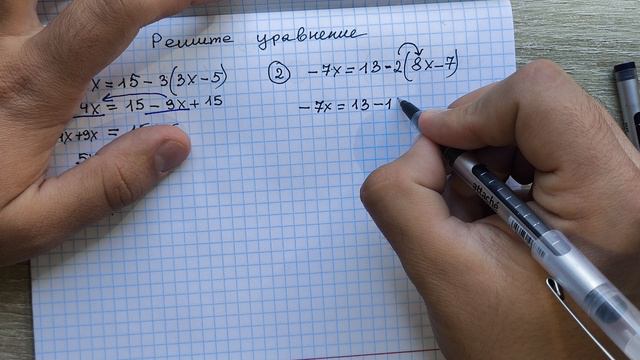 Решите уравнение
x = 15 - 3(3x-5)
4x = 15 - 9x + 15
4x+9x = 15
② -7x = 13 - 2(8x-7)
-7x = 13 - 1
attaché